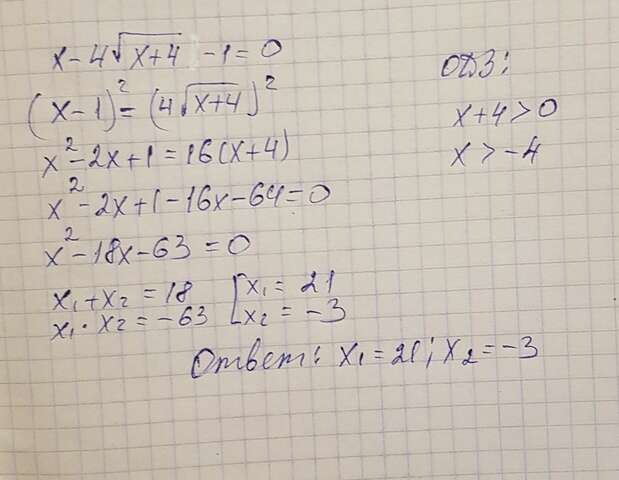 x - 4√(x+4) - 1 = 0
(x-1)² = (4√(x+4))²
x² - 2x + 1 = 16(x+4)
x² - 2x + 1 - 16x - 64 = 0
x² - 18x - 63 = 0
x₁ + x₂ = 18 [x₁ = 21
x₁ · x₂ = -63 [x₂ = -3
Ответ: x₁ = 21; x₂ = -3
ОДЗ:
x + 4 > 0
x > -4